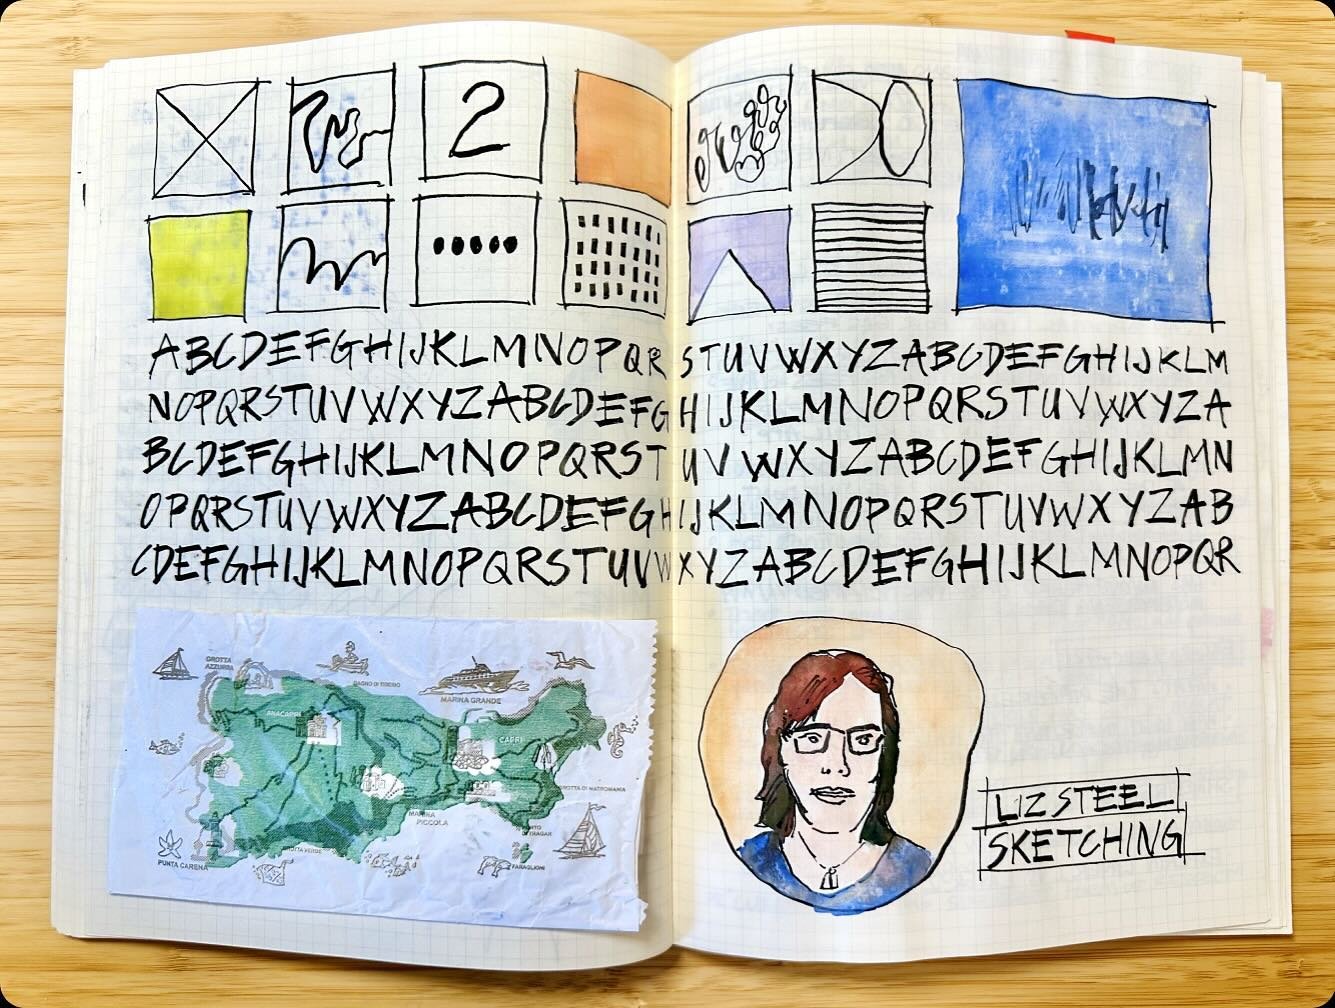 2
ABCDEFGHIJKLMNOPQRSTUVWXYZABCDEFGHIJKLM
NOPQRSTUVWXYZABCDEFGHIJKLMNOPQRSTUVWXYZA
BCDEFGHIJKLMNOPQRSTUVWXYZABCDEFGHIJKLMN
OPQRSTUVWXYZABCDEFGHIJKLMNOPQRSTUVWXYZAB
CDEFGHIJKLMNOPQRSTUVWXYZABCDEFGHIJKLMNOPQR
GROTTA
AZZURRA
BAGNO DI TIBERIO
MARINA GRANDE
ANACAPRI
CAPRI
GROTTA DI MATROMANIA
MARINA
PICCOLA
PORTO
DI TRAGARA
GROTTA VERDE
PUNTA CARENA
FARAGLIONI
LIZ STEEL
SKETCHING